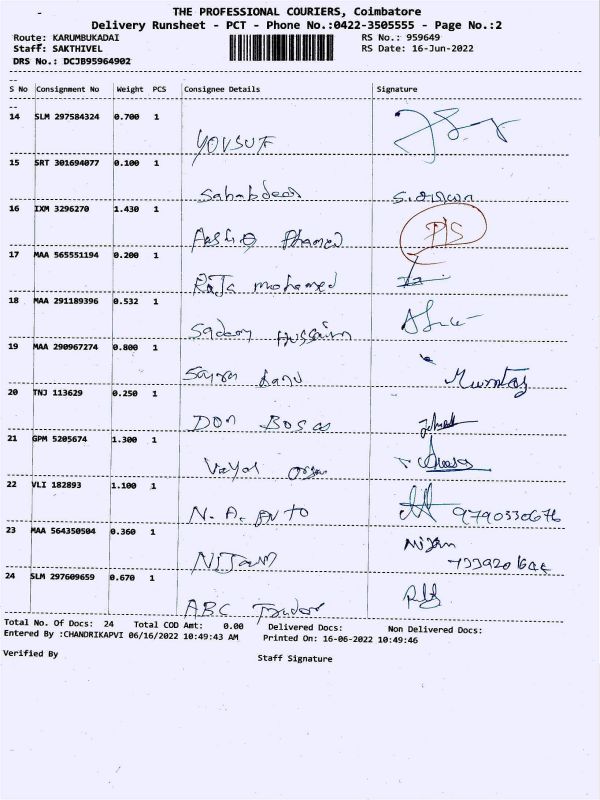 THE PROFESSIONAL COURIERS, Coimbatore
Delivery Runsheet - PCT - Phone No.:0422-3505555 - Page No.:2
Route: KARUMBUKADAI RS No.: 959649
Staff: SAKTHIVEL RS Date: 16-Jun-2022
DRS No.: DCJB95964902
S No Consignment No Weight PCS Consignee Details Signature
14 SLM 297584324 0.700 1
YOUSUF
15 SRT 301694077 0.100 1
Sahabdeen
16 IXM 3296270 1.430 1
Aashiq Ahamed
17 MAA 565551194 0.200 1
Raja mohamed
18 MAA 291189396 0.532 1
Sadam Hussain
19 MAA 290967274 0.800 1
Banu Mumtaj
20 TNJ 113629 0.250 1
DON BOSCO
21 GPM 5205674 1.300 1
22 VLI 182893 1.100 1
N. A. AUTO 9790330676
23 MAA 564350504 0.360 1
NIJAM Nijam
24 SLM 297609659 0.670 1
ABC
Total No. Of Docs: 24 Total COD Amt: 0.00 Delivered Docs: Non Delivered Docs:
Entered By :CHANDRIKAPVI 06/16/2022 10:49:43 AM Printed On: 16-06-2022 10:49:46
Verified By Staff Signature